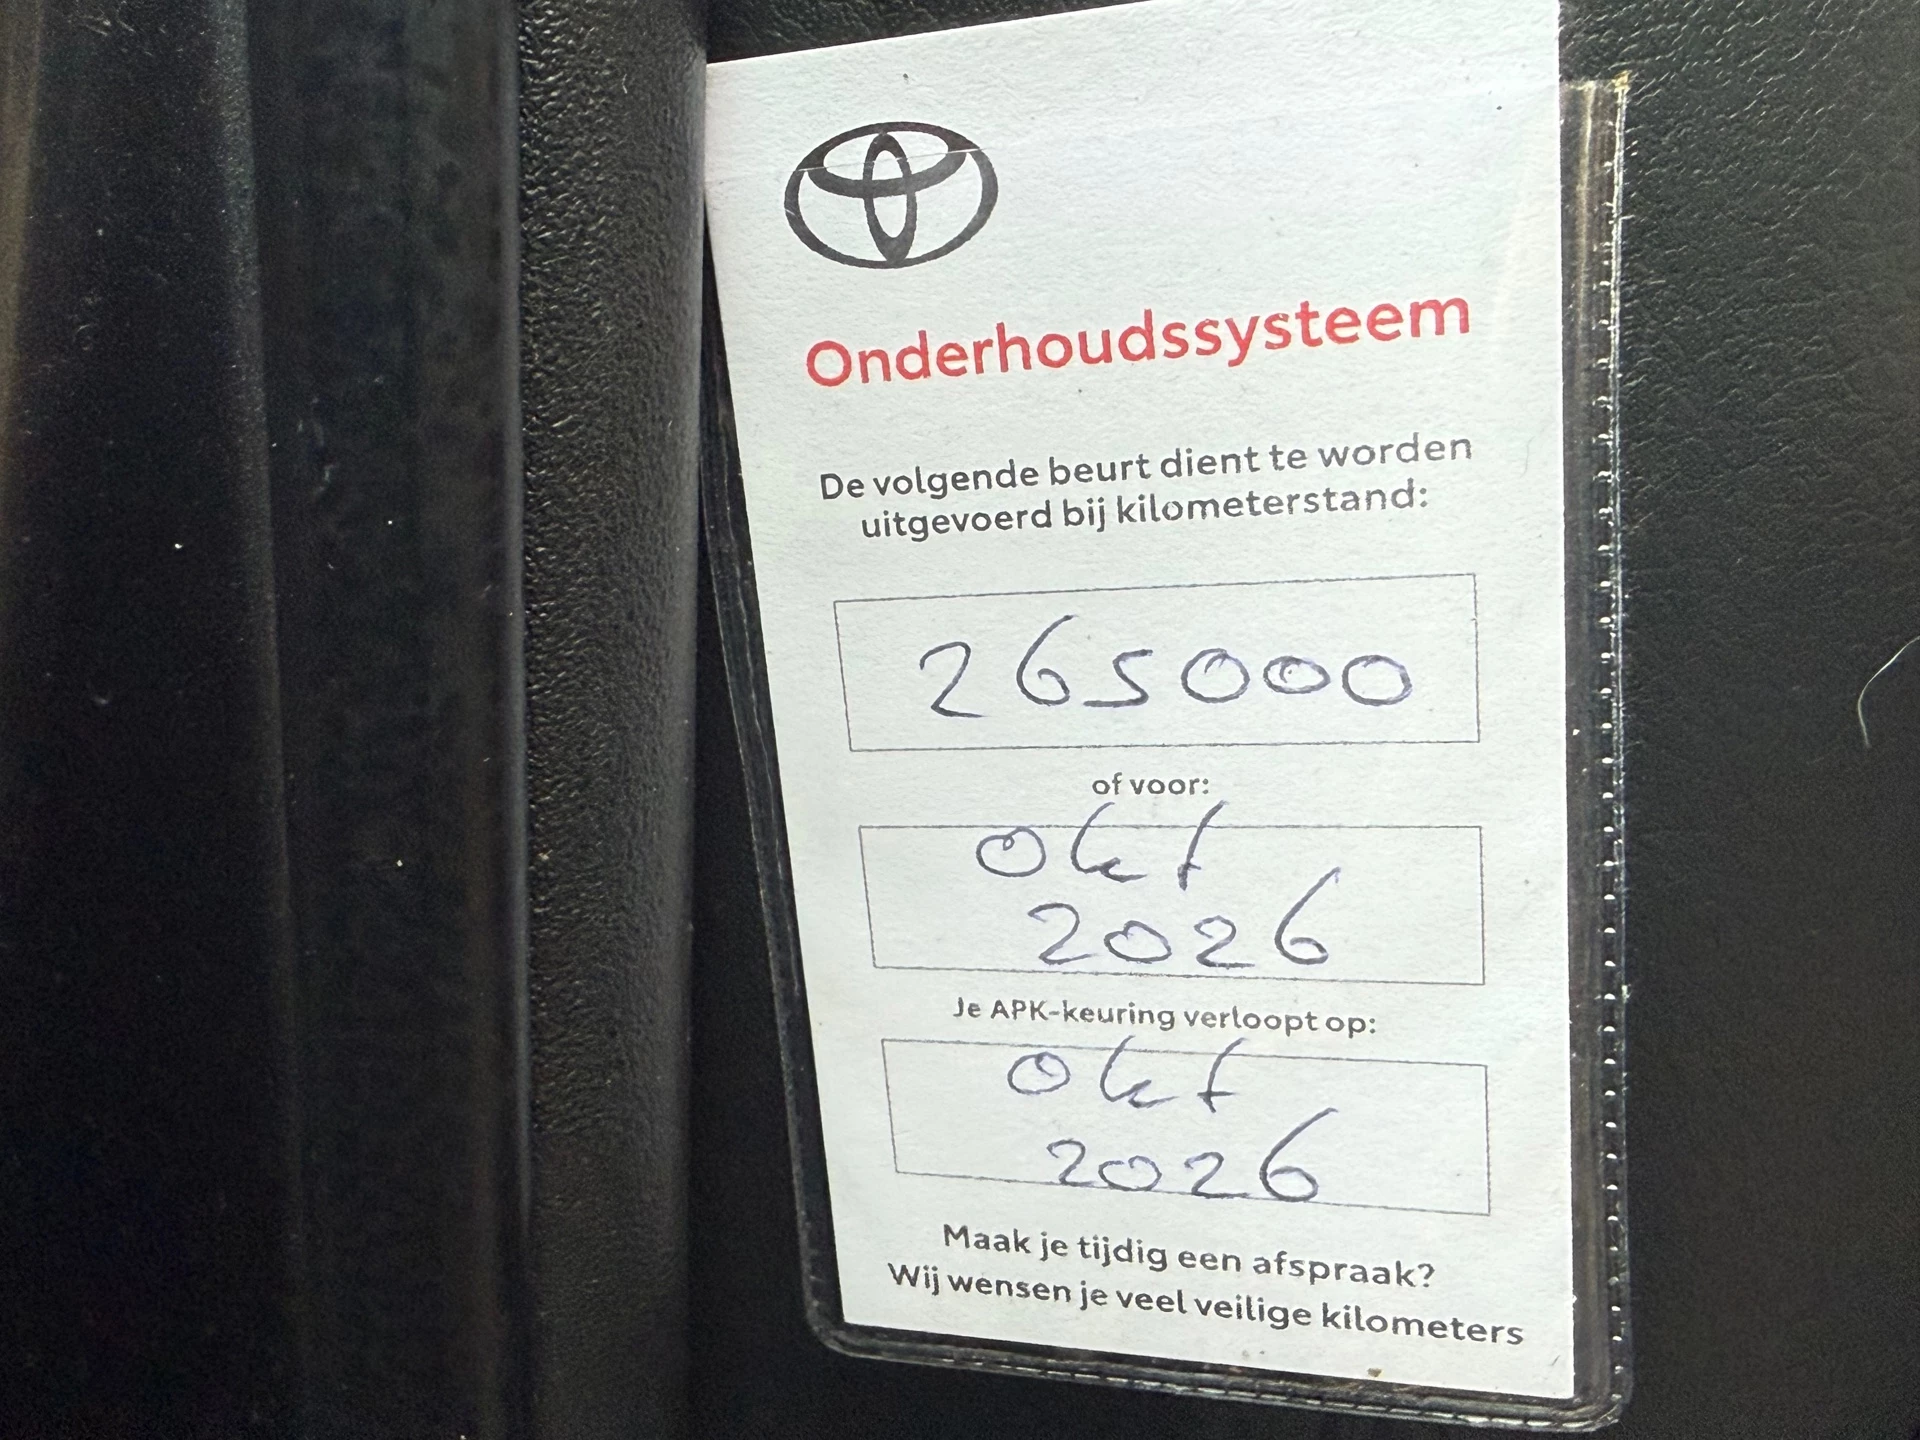 Onderhoudssysteem
De volgende beurt dient te worden
uitgevoerd bij kilometerstand:
265000
of voor:
okt
2026
Je APK-keuring verloopt op:
okt
2026
Maak je tijdig een afspraak?
Wij wensen je veel veilige kilometers